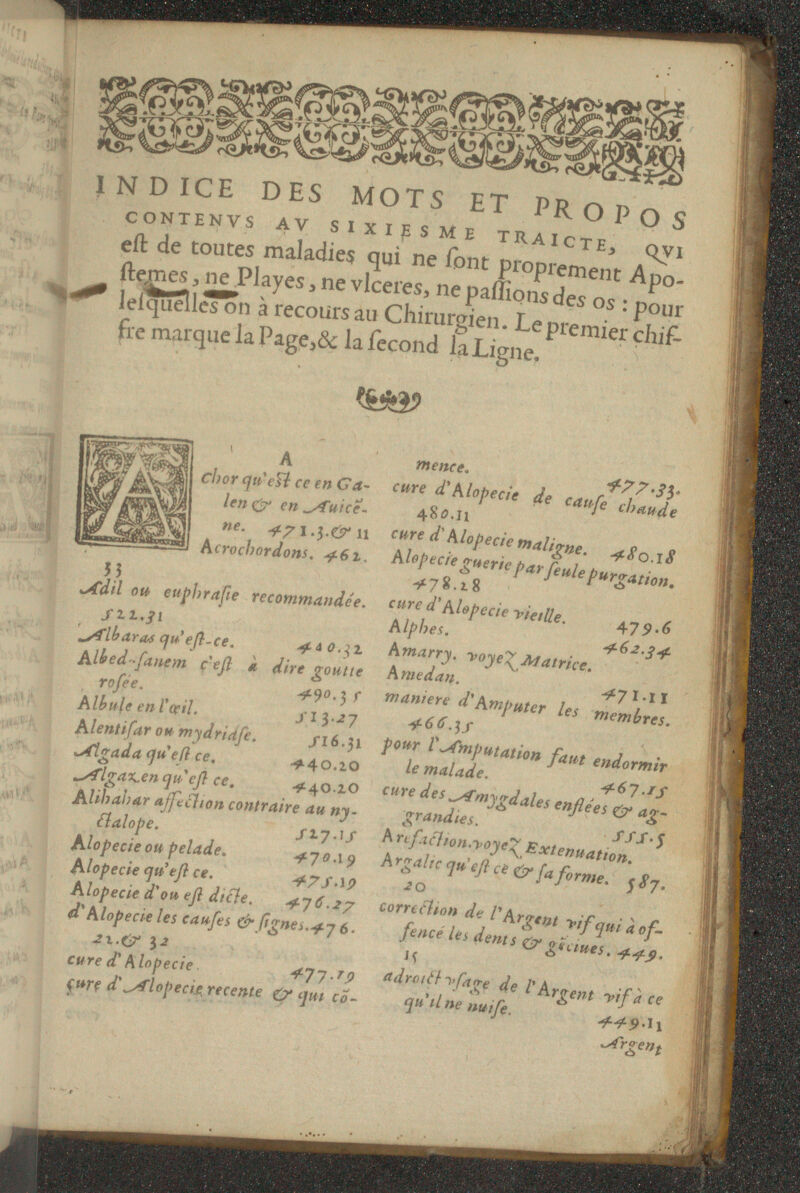 INDICE DES MOTS ET PROPOS
CONTENVS AV SIXIESME TRAICTE, QVI
eſt de toutes maladies qui ne ſont proprement Apo-
ſtemes, ne Playes, ne vlceres, ne paſſions des os : pour
leſquelles on à recours au Chirurgien. Le premier chif-
fre marque la Page,& la ſecond la Ligne.
A
Achor qu'eſt ce en Ga-
len & en Auicẽ-
ne. 471.3.& 11
Acrochordons. 462.
33
Adil ou euphraſie recommandée.
522.31
Albaras qu'eſt-ce. 440.32
Albed-ſanem c'eſt à dire goutte
roſée. 490.35
Albule en l'œil. 513.27
Alentiſar ou mydridſe. 516.31
Algada qu'eſt ce. 440.20
Algaz.en qu'eſt ce. 440.20
Alihahar affection contraire au ny-
ctalope. 527.15
Alopecie ou pelade. 470.19
Alopecie qu'eſt ce. 475.19
Alopecie d'ou eſt dicte. 476.27
d'Alopecie les cauſes & ſignes.476.
21.& 32
cure d'Alopecie. 477.19
cure d'Alopecie recente & qui cõ-
mence. 477.33.
cure d'Alopecie de cauſe chaude
480.11
cure d'Alopecie maligne. 480.18
Alopecie guerie par ſeule purgation.
478.28
cure d'Alopecie vieille. 479.6
Alphes. 462.34
Amarry. voyeZ Matrice.
Amedan. 471.11
maniere d'Amputer les membres.
466.35
pour l'Amputation faut endormir
le malade. 467.15
cure des Amygdales enflées & ag-
grandies. 555.5
Arefaction.voyeZ Extenuation.
Argalic qu'eſt ce & ſa forme. 587.
20
correction de l'Argent vif qui à of-
fencé les dents & gẽciues. 449.
15
adroict vſage de l'Argent vif à ce
qu'il ne nuiſe. 449.11
Argent